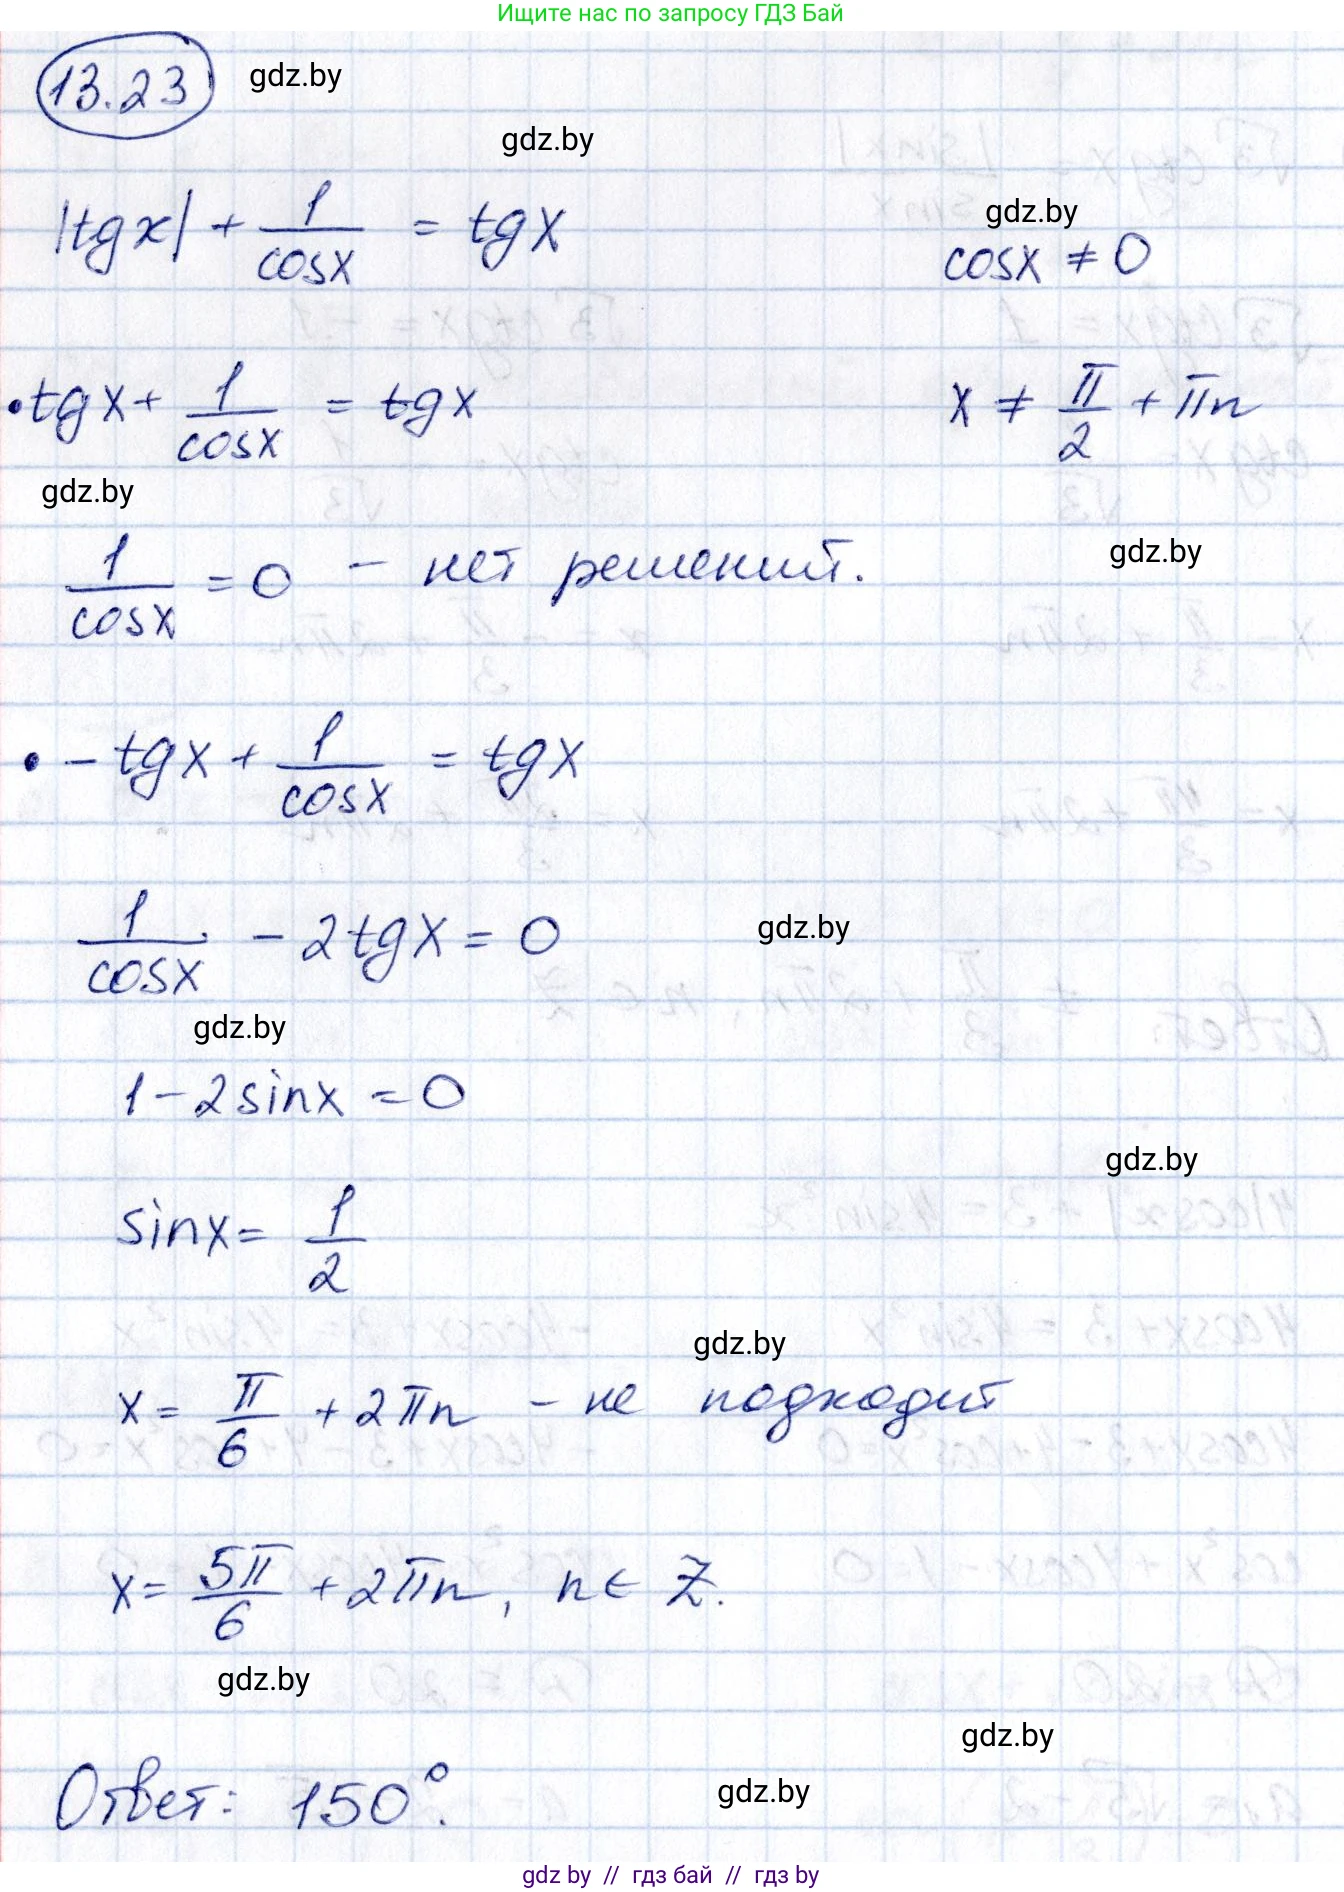 Ищите нас по запросу ГДЗ Бай
13.23
gdz.by
gdz.by
|tgx| + 1/cosx = tgx
gdz.by
cosx ≠ 0
• tgx + 1/cosx = tgx
x ≠ π/2 + πn
gdz.by
1/cosx = 0 – нет решений.
gdz.by
• – tgx + 1/cosx = tgx
1/cosx – 2tgx = 0
gdz.by
gdz.by
1 – 2sinx = 0
gdz.by
sinx = 1/2
gdz.by
x = π/6 + 2πn – не подходит
x = 5π/6 + 2πn, n ∈ Z.
gdz.by
gdz.by
Ответ: 150°.
gdz.by
gdz by // гдз бай // гдз by